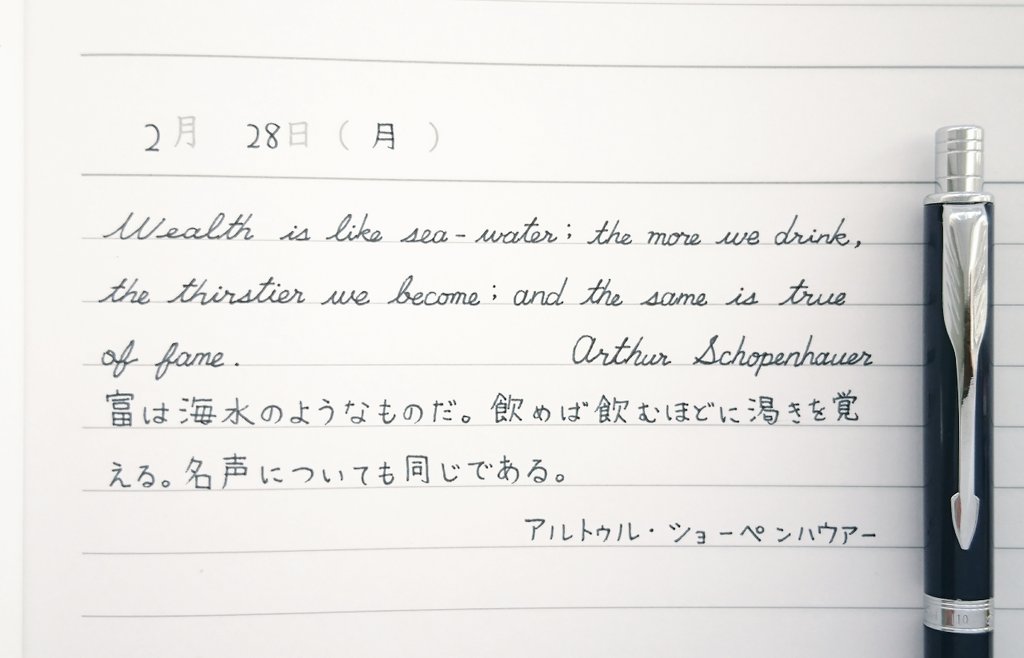 2月 28日 ( 月 )
Wealth is like sea-water; the more we drink,
the thirstier we become; and the same is true
of fame. Arthur Schopenhauer
富は海水のようなものだ。飲めば飲むほどに渇きを覚
える。名声についても同じである。
アルトゥル・ショーペンハウアー
10